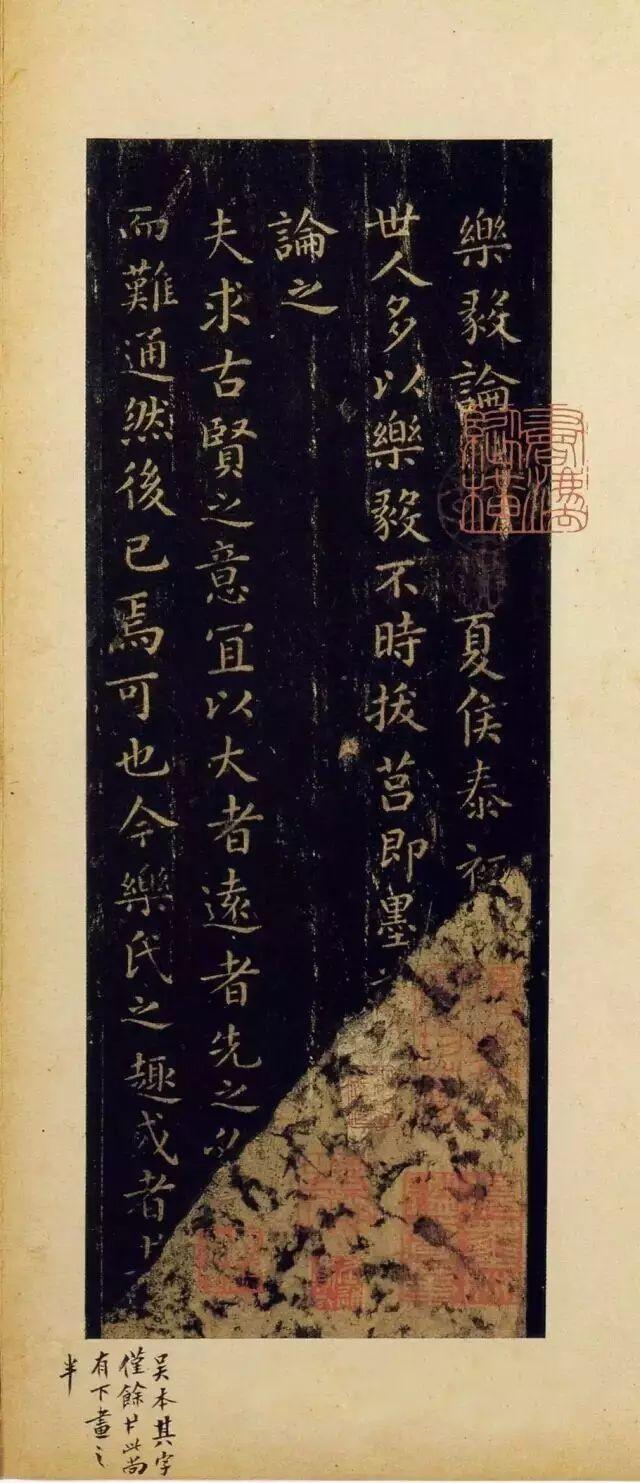 樂毅論 夏侯泰初
世人多以樂毅不時拔莒即墨
論之
夫求古賢之意宜以大者遠者先之必
而難通然後已焉可也今樂氏之趣或者
吴本其字
僅餘卄此尚
有下畫之
半